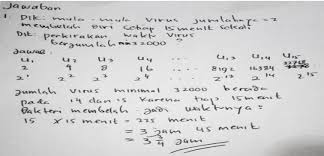 Jawaban
1. Dik: mula-mula virus jumlahnya = 2
membelah diri setiap 15 menit sekali
Dit: perkiraan waktu virus
berjumlah 32000
Jawab:
U1 U2 U3 U4 ... U13 U14 U15
2 4 8 16 ... 8192 16384 32768
2¹ 2² 2³ 2⁴ 2¹³ 2¹⁴ 2¹⁵
Jumlah virus minimal 32000 berada
pada 14 dan 15 karena tiap 15 menit
Bakteri membelah jadi waktunya:
15 x 15 menit = 225 menit
= 3 jam 45 menit
= 3 3/4 jam